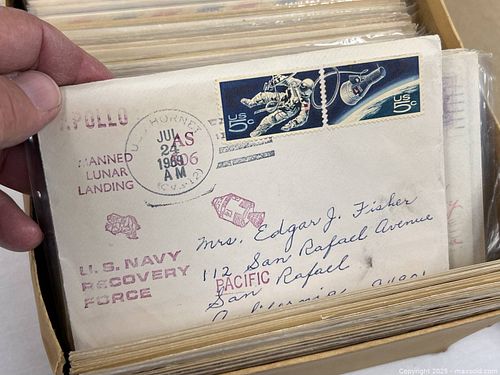 APOLLO
MANNED
LUNAR
LANDING
U.S.S. HORNET
JUL
24
AM
1969
(CVS-12)
AS
506
US
5c
US
5c
U.S. NAVY
RECOVERY
FORCE
PACIFIC
Mrs. Edgar J. Fisher
112 San Rafael Avenue
San Rafael
California
Copyright 2025 - maxsold.com